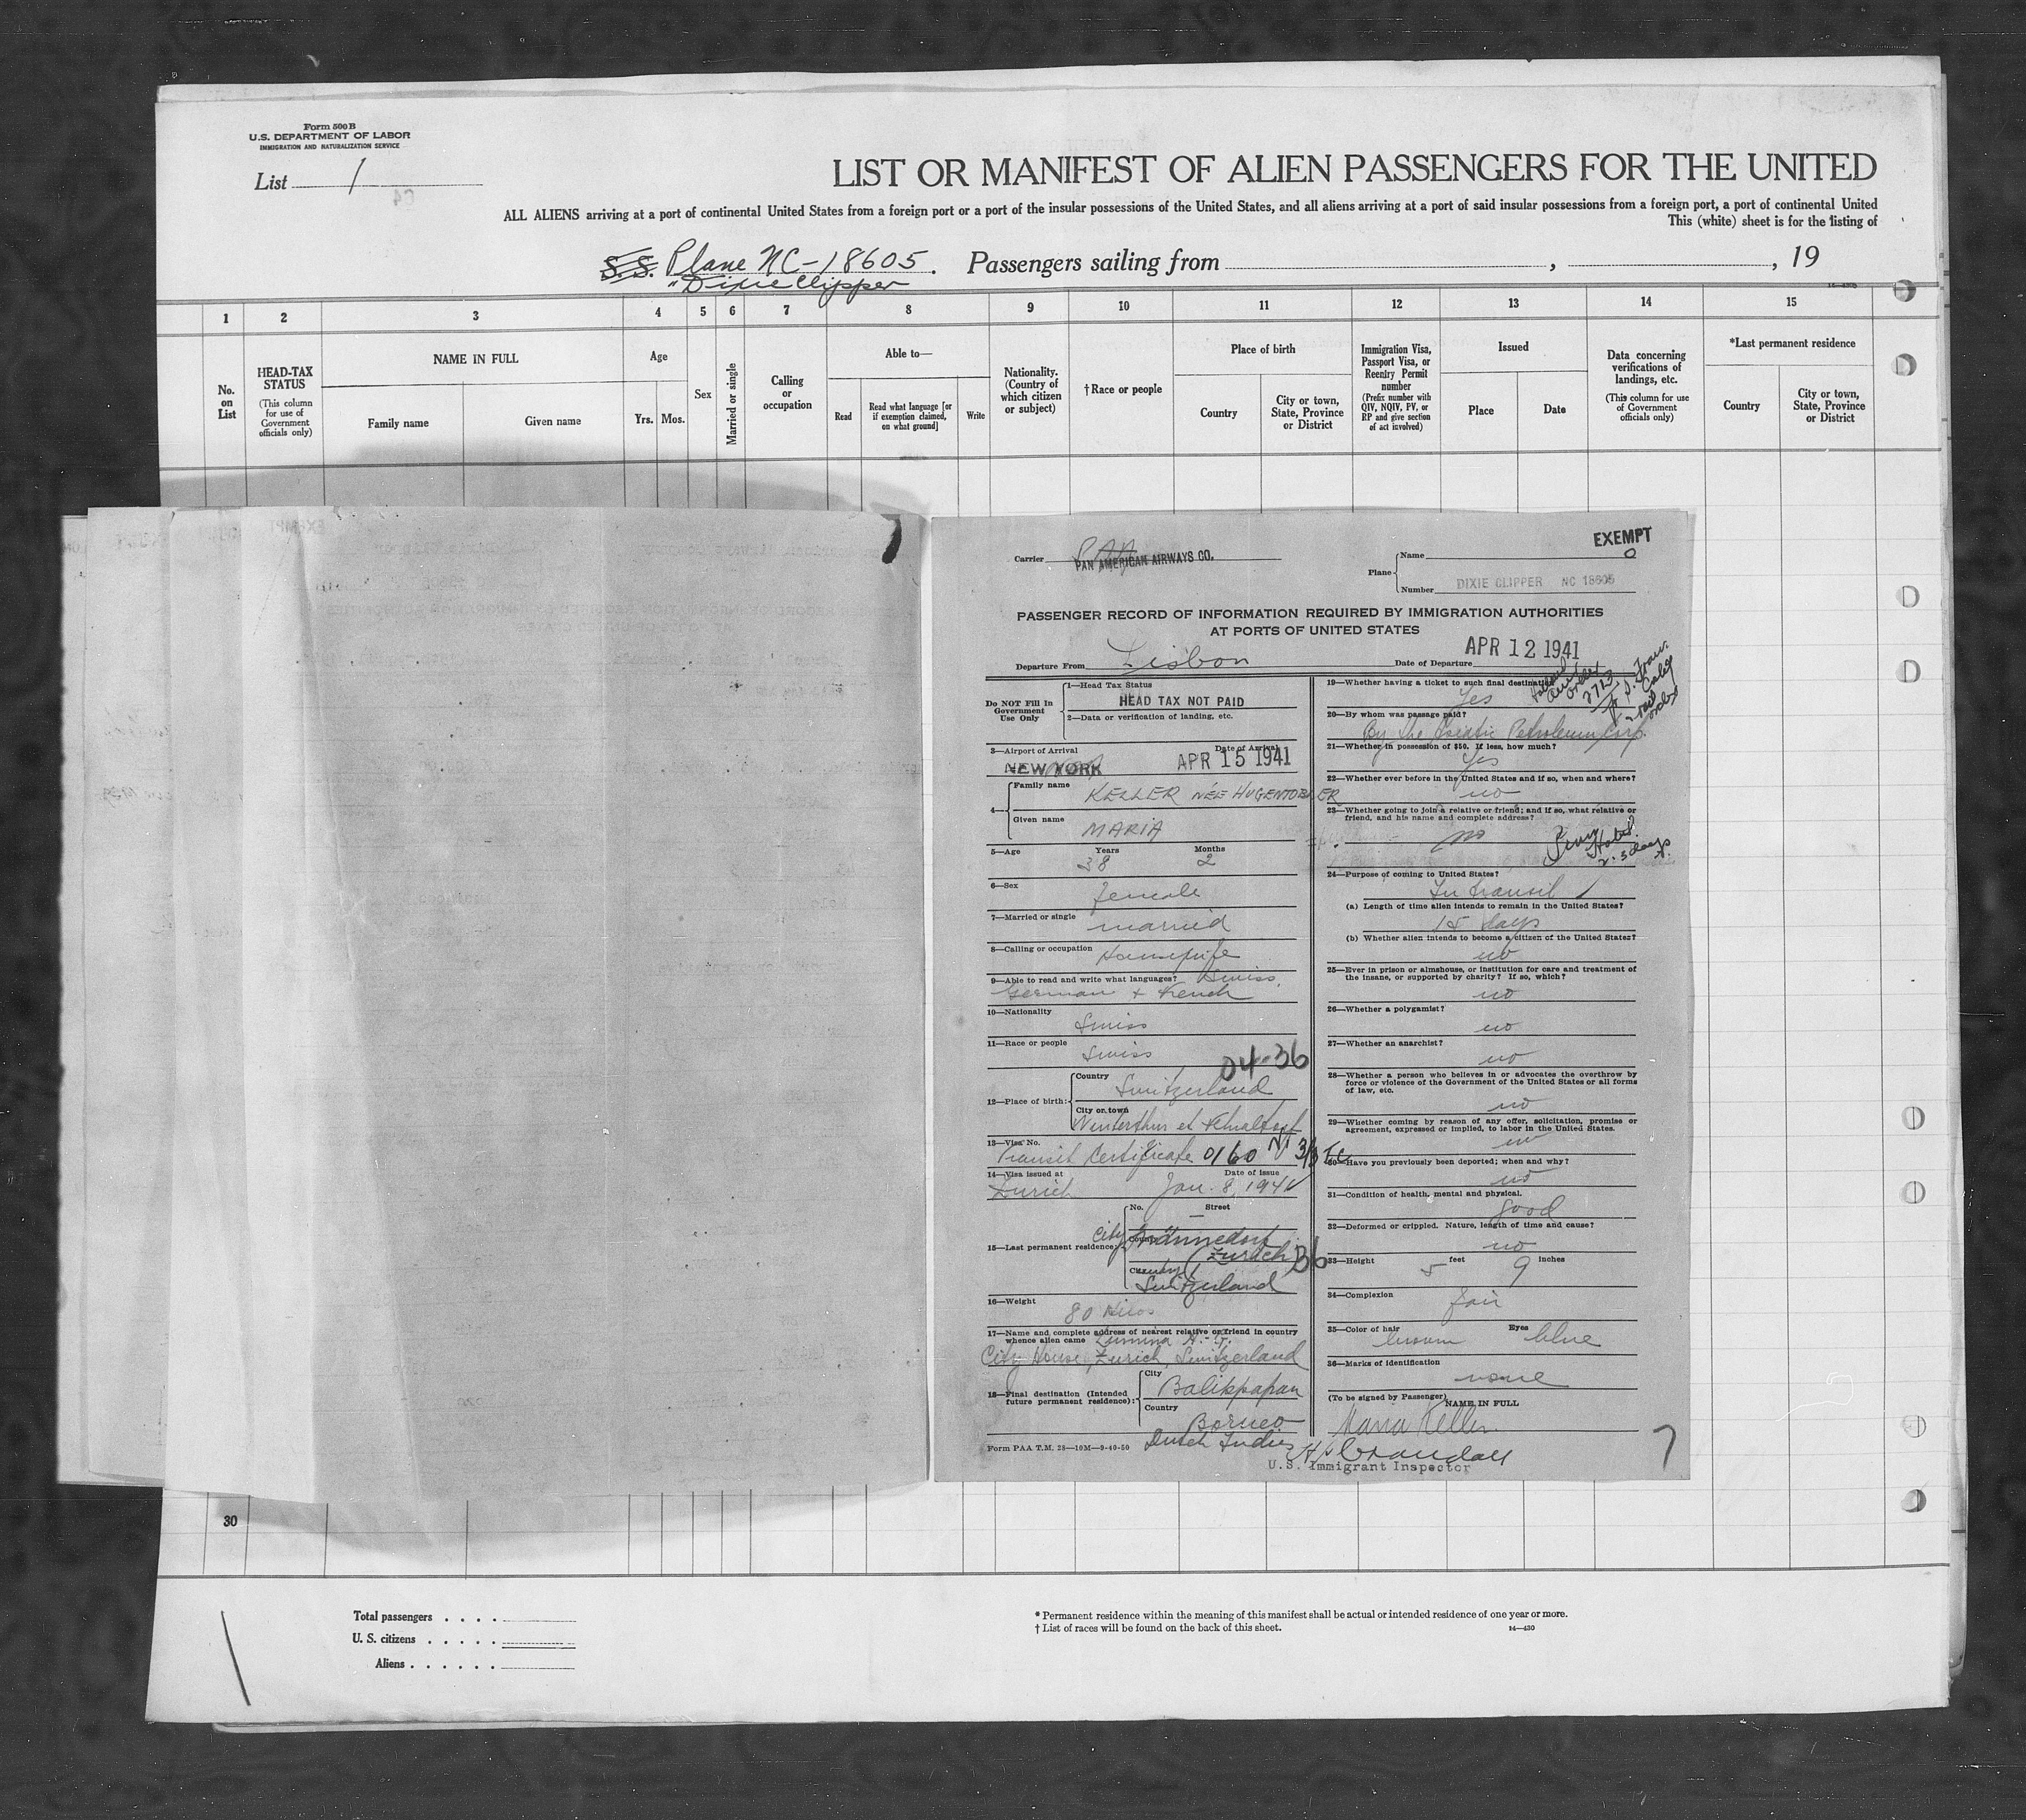 Form 500 B
U.S. DEPARTMENT OF LABOR
IMMIGRATION AND NATURALIZATION SERVICE
List 1
LIST OR MANIFEST OF ALIEN PASSENGERS FOR THE UNITED
ALL ALIENS arriving at a port of continental United States from a foreign port or a port of the insular possessions of the United States, and all aliens arriving at a port of said insular possessions from a foreign port, a port of continental United
This (white) sheet is for the listing of
S.S. Plane NC-18605. Passengers sailing from , , 19
"Dixie Clipper
1 2 3 4 5 6 7 8 9 10 11 12 13 14 15
No. on List
HEAD-TAX STATUS
(This column for use of Government officials only)
NAME IN FULL
Family name
Given name
Age
Yrs. Mos.
Sex
Married or single
Calling or occupation
Able to—
Read
Read what language [or if exemption claimed, on what ground]
Write
Nationality. (Country of which citizen or subject)
†Race or people
Place of birth
Country
City or town, State, Province or District
Immigration Visa, Passport Visa, or Reentry Permit number
(Prefix number with QIV, NQIV, PV, or RP and give section of act involved)
Issued
Place
Date
Data concerning verifications of landings, etc.
(This column for use of Government officials only)
*Last permanent residence
Country
City or town, State, Province or District
EXEMPT
Carrier PAN AMERICAN AIRWAYS CO.
Plane
Name
Number DIXIE CLIPPER NC 18605
PASSENGER RECORD OF INFORMATION REQUIRED BY IMMIGRATION AUTHORITIES
AT PORTS OF UNITED STATES
Departure From Lisbon
Date of Departure APR 12 1941
Do NOT Fill In Government Use Only
1—Head Tax Status
HEAD TAX NOT PAID
2—Data or verification of landing, etc.
3—Airport of Arrival
NEW YORK
Date of Arrival
APR 15 1941
4—
Family name KELLER NÉE HUGENTOBLER
Given name MARIA
5—Age
Years 38
Months 2
6—Sex female
7—Married or single married
8—Calling or occupation Housewife
9—Able to read and write what languages? Swiss,
German + French
10—Nationality
Swiss
11—Race or people
Swiss
04-36
12—Place of birth:
Country
Switzerland
City or town
Winterthur et
13—Visa No.
Transit Certificate 0160
14—Visa issued at
Zurich
Date of issue
Jan. 8, 1941
15—Last permanent residence:
No. Street
City Männedorf
(Zurich)
36
Country
Switzerland
16—Weight
80 kilos
17—Name and complete address of nearest relative or friend in country
whence alien came Lumina A.-G.
City House, Zurich, Switzerland
18—Final destination (Intended future permanent residence):
City
Balikpapan
Country
Borneo
Dutch Indies
Form PAA T.M. 28—10M—9-40-50
19—Whether having a ticket to such final destination?
Yes
20—By whom was passage paid?
By the Asiatic Petroleum Corp.
21—Whether in possession of $50. If less, how much?
Yes
22—Whether ever before in the United States and if so, when and where?
no
23—Whether going to join a relative or friend; and if so, what relative or
friend, and his name and complete address?
no
Hotel
2-3 days
24—Purpose of coming to United States?
In transit
(a) Length of time alien intends to remain in the United States?
15 days
(b) Whether alien intends to become a citizen of the United States?
no
25—Ever in prison or almshouse, or institution for care and treatment of
the insane, or supported by charity? If so, which?
no
26—Whether a polygamist?
no
27—Whether an anarchist?
no
28—Whether a person who believes in or advocates the overthrow by
force or violence of the Government of the United States or all forms
of law, etc.
no
29—Whether coming by reason of any offer, solicitation, promise or
agreement, expressed or implied, to labor in the United States.
no
30—Have you previously been deported; when and why?
no
31—Condition of health, mental and physical.
good
32—Deformed or crippled. Nature, length of time and cause?
no
33—Height 5 feet 9 inches
34—Complexion
fair
35—Color of hair brown Eyes blue
36—Marks of identification
none
(To be signed by Passenger) NAME IN FULL
Maria Keller
Crandall
U.S. Immigrant Inspector
7
30
Total passengers . . . .
U. S. citizens . . . . .
Aliens . . . . . .
* Permanent residence within the meaning of this manifest shall be actual or intended residence of one year or more.
† List of races will be found on the back of this sheet.
14—430